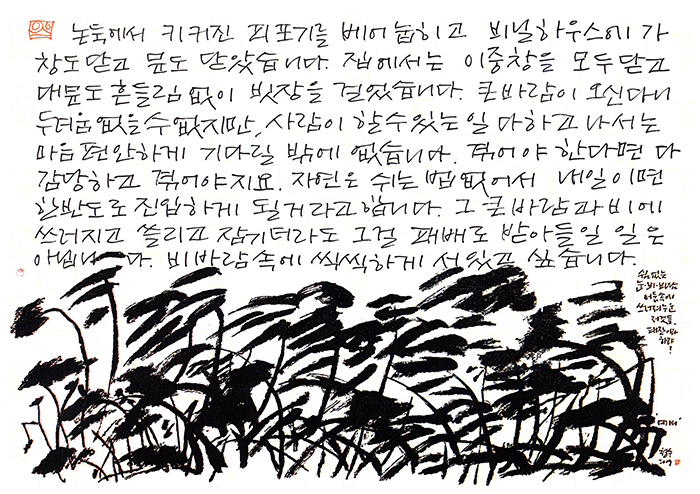 논둑에서 키커진 피포기를 베어 눕히고 비닐하우스에 가
창도닫고 문도 닫았습니다. 집에서는 이중창을 모두 닫고
대문도 흔들림 없이 빗장을 걸었습니다. 큰바람이 오신다니
두려움 없을 수 없지만, 사람이 할 수 있는 일 다하고 나서는
마음 편안하게 기다릴 밖에 없습니다. 겪어야 한다면 다
감당하고 겪어야지요. 자연은 쉬는 법 없어서 내일이면
한반도로 진입하게 될거라고 합니다. 그 큰바람과 비에
쓰러지고 쓸리고 잠기더라도 그걸 패배로 받아들일 일은
아닙니다. 비바람 속에 씩씩하게 서있고 싶습니다.
쉼없는
눈·비·바람
어둠속에
쓰러져누운
저것들,
패잔이라
하랴
?